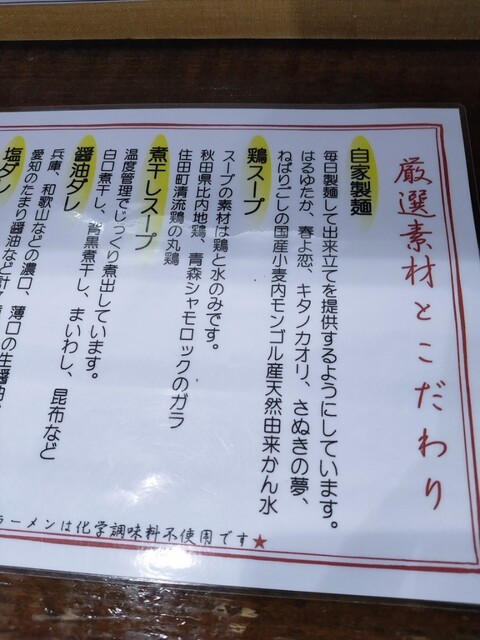 厳選素材とこだわり
自家製麺
毎日製麺して出来立てを提供するようにしています。
はるゆたか、春よ恋、キタノカオリ、さぬきの夢、
ねばりごしの国産小麦内モンゴル産天然由来かん水
鶏スープ
スープの素材は鶏と水のみです。
秋田県比内地鶏、青森シャモロックのガラ
住田町清流鶏の丸鶏
煮干しスープ
温度管理でじっくり煮出しています。
白口煮干し、背黒煮干し、まいわし、昆布など
醤油ダレ
兵庫、和歌山などの濃口、薄口の生醤油、
愛知のたまり醤油など計
塩ダレ
ラーメンは化学調味料不使用です★